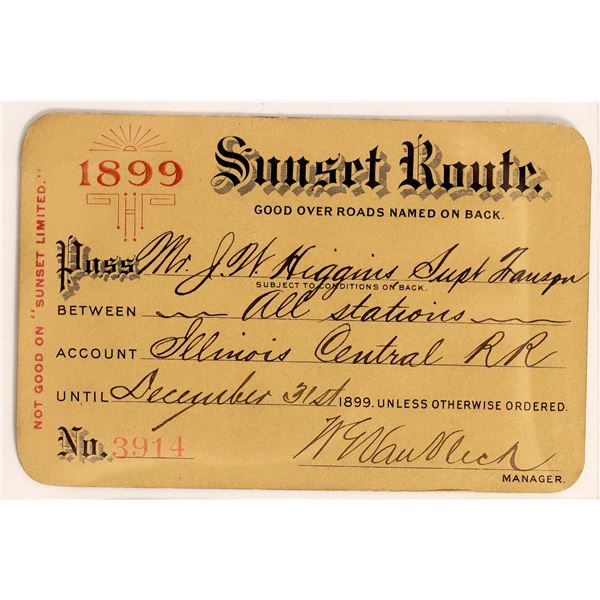 1899
Sunset Route.
GOOD OVER ROADS NAMED ON BACK.
Pass Mr. J. W. Higgins, Supt Transpn
SUBJECT TO CONDITIONS ON BACK.
BETWEEN All stations
ACCOUNT Illinois Central RR
UNTIL December 31st 1899. UNLESS OTHERWISE ORDERED.
No. 3914
W G Van Vleck
MANAGER.
NOT GOOD ON "SUNSET LIMITED."